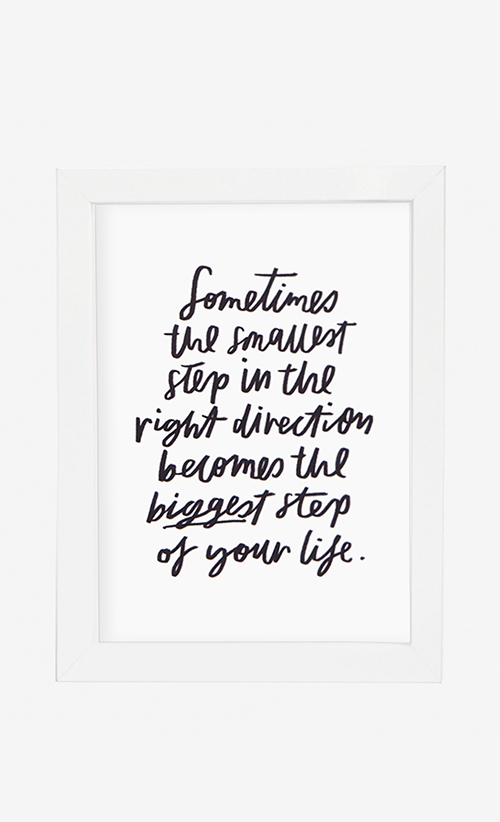 Sometimes
the smallest
step in the
right direction
becomes the
biggest step
of your life.